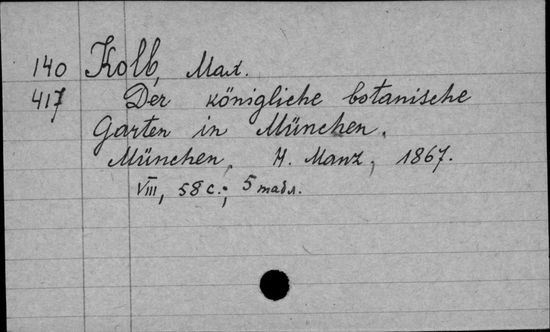 140 Kolb, Max.
417 Der königliche botanische
Garten in München.
München, H. Manz, 1867.
VIII, 58 с.; 5 табл.